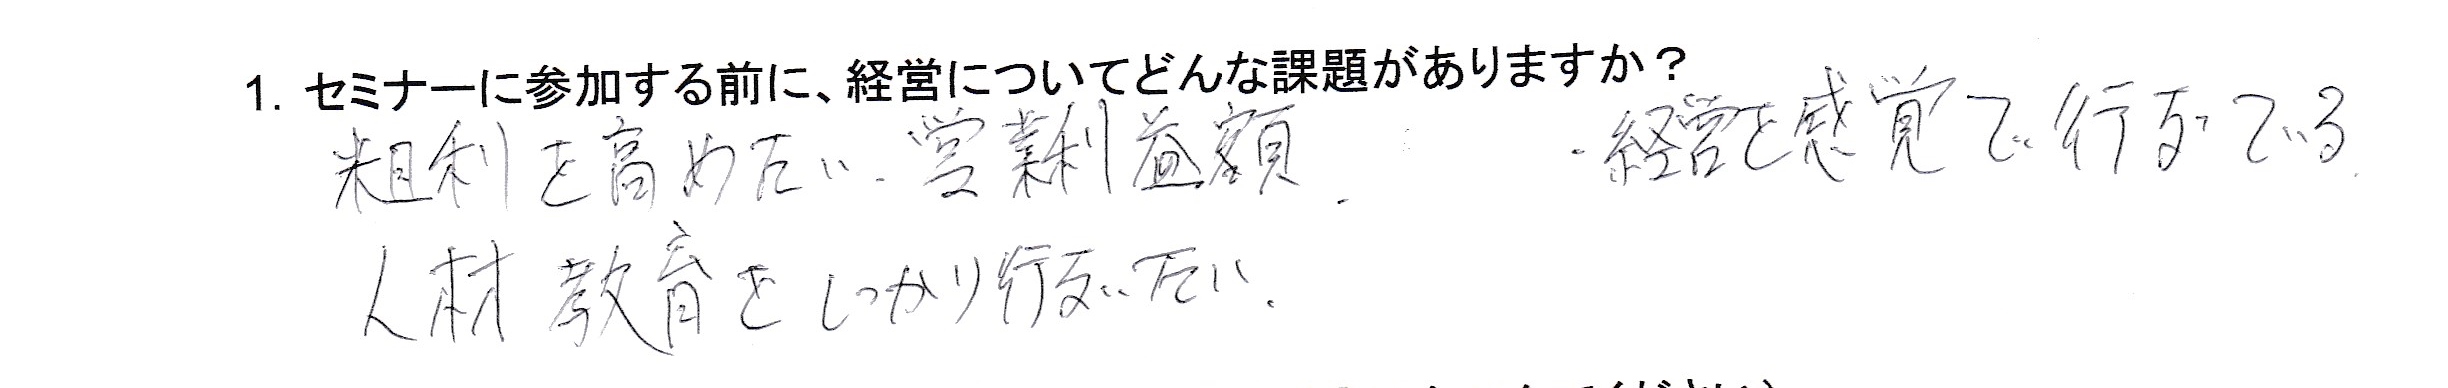 1. セミナーに参加する前に、経営についてどんな課題がありますか？
粗利を高めたい.営業利益額.
・経営を感覚で行なている.
人材教育をしっかり行ないたい.